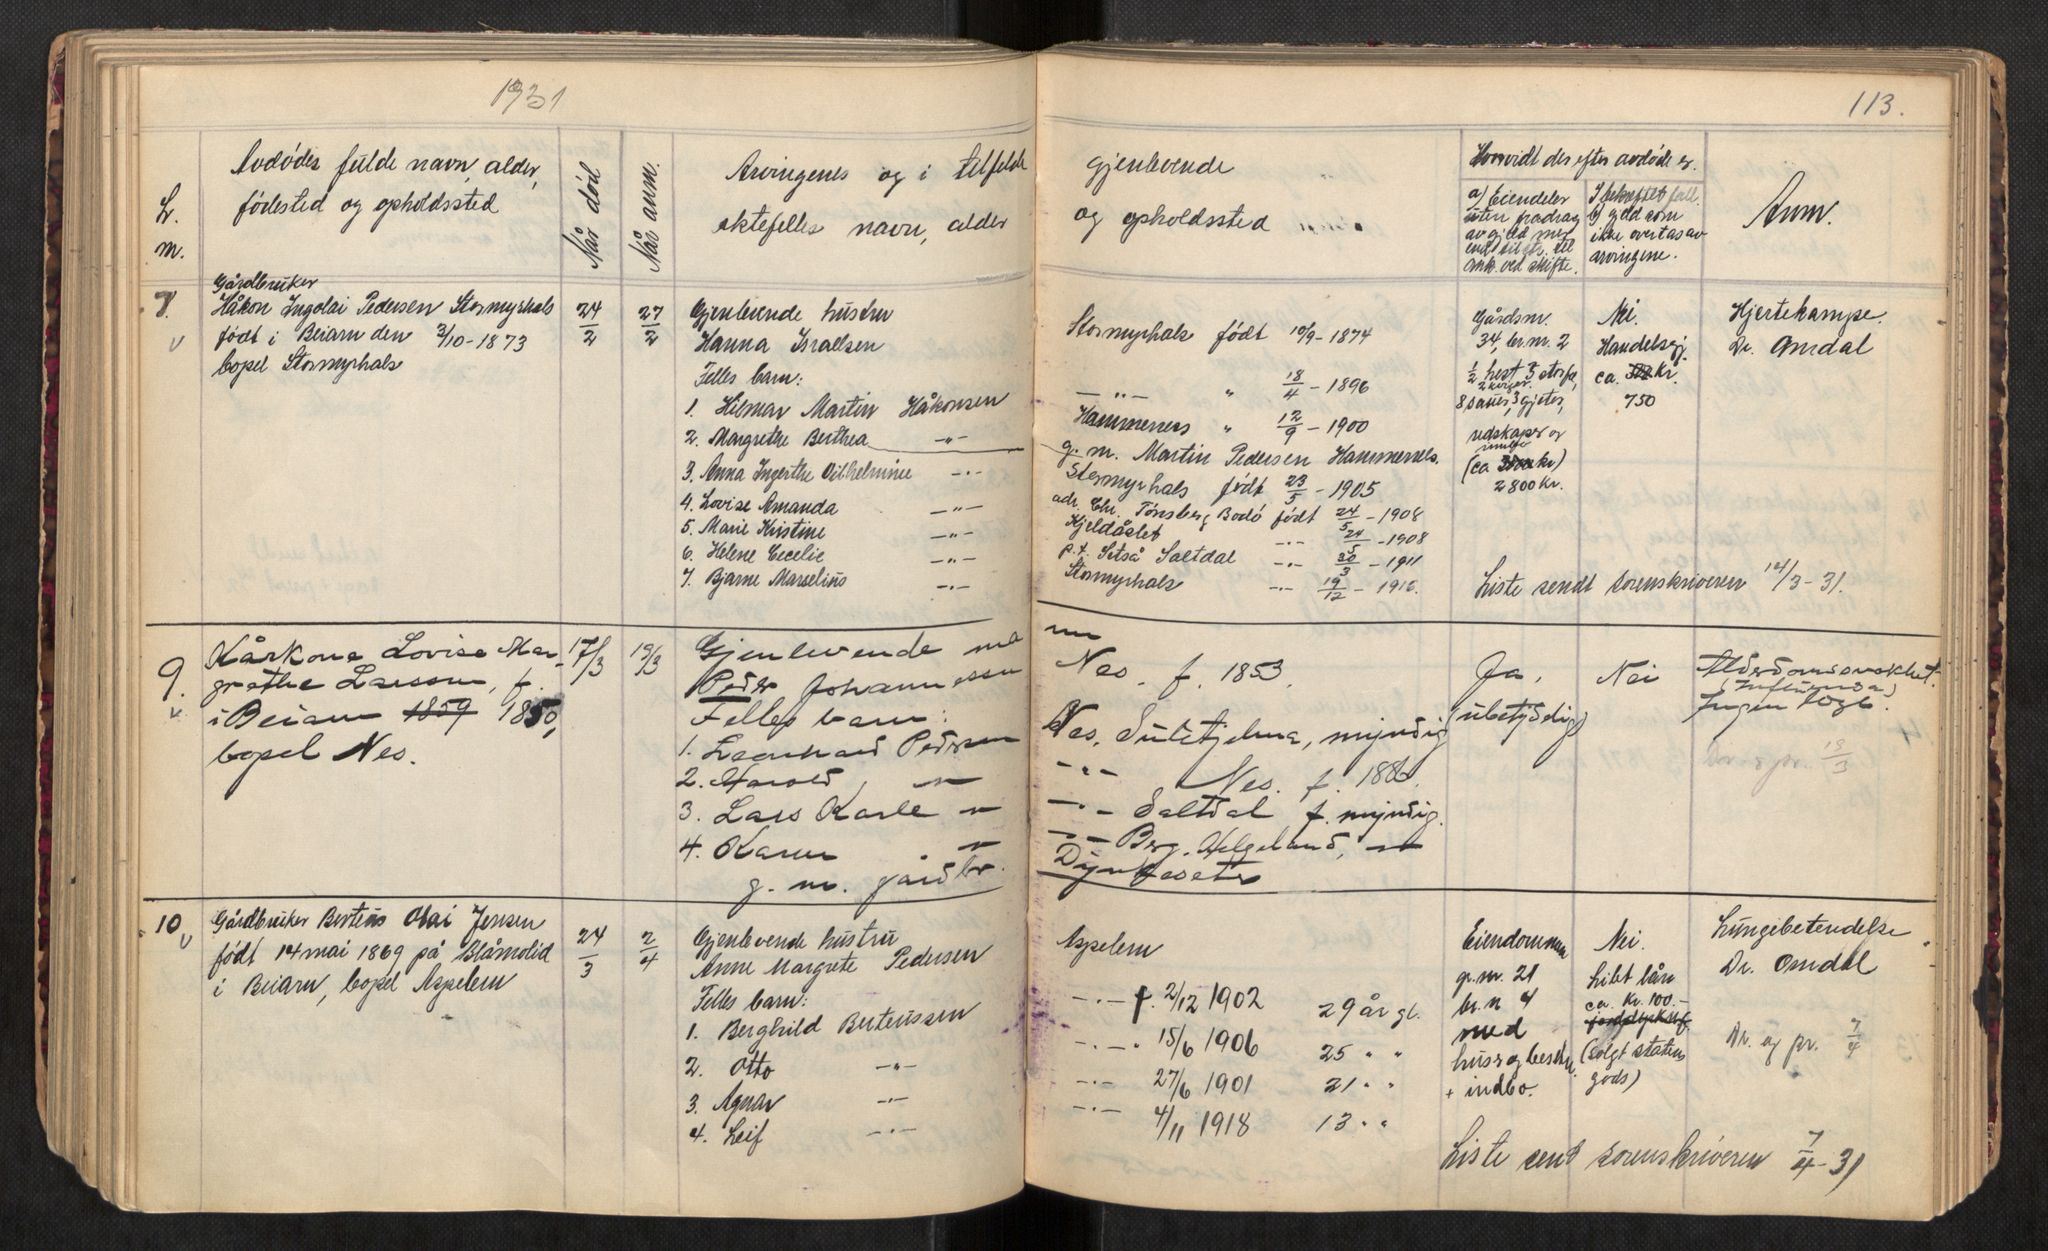 1931
113.
L.
m.
Avdødes fulde navn, alder,
fødested og opholdssted
Når død
Når anm.
Arvingenes og i tilfelde
ektefelles navn, alder
gjenlevende
og opholdssted
Hvorvidt der efter avdøde er
a) Eiendeler
uten fradrag
av gjeld
ved skifte.
I bekreftet fall.
b) gjeld som
ikke overtas av
arvingene.
Anm.
Gårdbruker
Håkon Ingolai Pedersen Stormyrhals
født i Beiarn den 3/10-1873
bopel Stormyrhals
24/2
27/2
Gjenlevende hustru
Hanna Israelsen
Felles barn:
1. Hilmar Martin Håkonsen
2. Margrethe Berthea -"-
3. Anna Ingerthe Vilhelmine -"-
4. Lovise Amanda -"-
5. Marie Kristine -"-
6. Helene Cecelie -"-
7. Bjarne Marselius -"-
Stormyrhals født 10/9-1874
-"- " 18/4-1896
Hammernes " 12/9-1900
g. m. Martin Pedersen Hammernes.
Stormyrhals født 23/5-1905
adr. Chr. Tønsberg Bodø født 24/5-1908
Kjeldåslet -"- 24/5-1908
p.t. Setså Saltdal -"- 30/3-1911
Stormyrhals -"- 19/12-1916.
Gårdsm.
34, br. nr. 2
1/2 hest 3 storfe,
8 sauer, 3 gjeter,
redskaper og
innbo
(ca kr)
2800 kr.
Nei.
Handelsgj.
ca. kr.
750
Hjertekampe.
Dr. Omdal
Liste sendt sorenskriveren 14/3-31.
9.
Kårkone Lovise Mar-
grethe Larssen, f.
i Beiarn 1859 1850,
bopel Nes.
17/3
19/3
Gjenlevende ma
Peder Johannessen
Felles barn:
1. Leonhard Pedersen
2. Harold, -"-
3. Lars Karle -"-
4. Karen -"-
g. m. gårdbr.
nn
Nes. f. 1853.
Nes, Sulitjelma, myndig
-"- Nes. f. 1886.
-"- Saltdal f. myndig.
-"- Berg, Helgeland, -"-
Ja,
(ubetydelig)
Nei
Alderdomssvakhet.
(Influensa)
Ingen lege.
Dr og pr. 19/3
10
Gårdbruker Berteus Olai Jensen
født 14 mai 1869 på Blåmolid
i Beiarn, bopel Aspelem
24/3
2/4
Gjenlevende hustru
Anne Margrete Pedersen
Felles barn:
1. Berghild Berteussen
2. Otto -"-
3. Agnar -"-
4. Leif -"-
Aspelem
-"- f. 2/12 1902 29 år gl.
-"- " 15/6 1906 25 " "
-"- 27/6 1901 21 " "
-"- 4/11 1918 13 " "
Eiendommen
gr. nr. 21
br. n 4
med
hus og besetn.
+ indbo.
Nei.
Litet lån
ca. kr. 100.-
(solgt statens
gods)
Lungebetendelse
Dr. Omdal
Dr. og pr. 7/4
Liste sent sorenskriveren 7/4-31